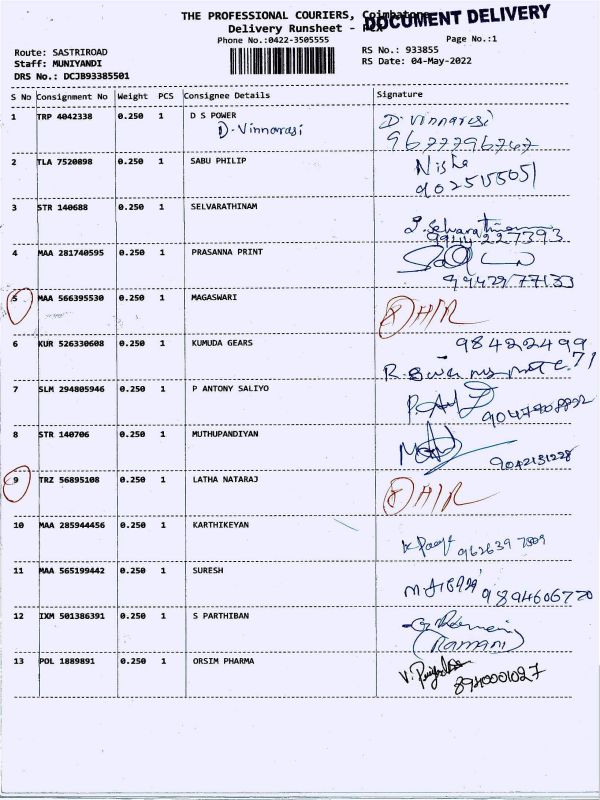 THE PROFESSIONAL COURIERS, Coimbatore
DOCUMENT DELIVERY
Delivery Runsheet - PCX
Phone No.:0422-3505555
Page No.:1
Route: SASTRIROAD
RS No.: 933855
Staff: MUNIYANDI
RS Date: 04-May-2022
DRS No.: DCJB93385501
S No Consignment No Weight PCS Consignee Details Signature
1 TRP 4042338 0.250 1 D S POWER D. Vinnarasi
D. Vinnarasi 9677796747
2 TLA 7520898 0.250 1 SABU PHILIP Nisha
9025155051
3 STR 140688 0.250 1 SELVARATHINAM
9944227393
4 MAA 281740595 0.250 1 PRASANNA PRINT
9942977133
5 MAA 566395530 0.250 1 MAGASWARI
6 KUR 526330608 0.250 1 KUMUDA GEARS 9842249971
7 SLM 294805946 0.250 1 P ANTONY SALIYO
8 STR 140706 0.250 1 MUTHUPANDIYAN
9042131228
9 TRZ 56895108 0.250 1 LATHA NATARAJ
10 MAA 285944456 0.250 1 KARTHIKEYAN
9626397809
11 MAA 565199442 0.250 1 SURESH
9894606770
12 IXM 501386391 0.250 1 S PARTHIBAN
(RAMANI)
13 POL 1889891 0.250 1 ORSIM PHARMA
8940001027